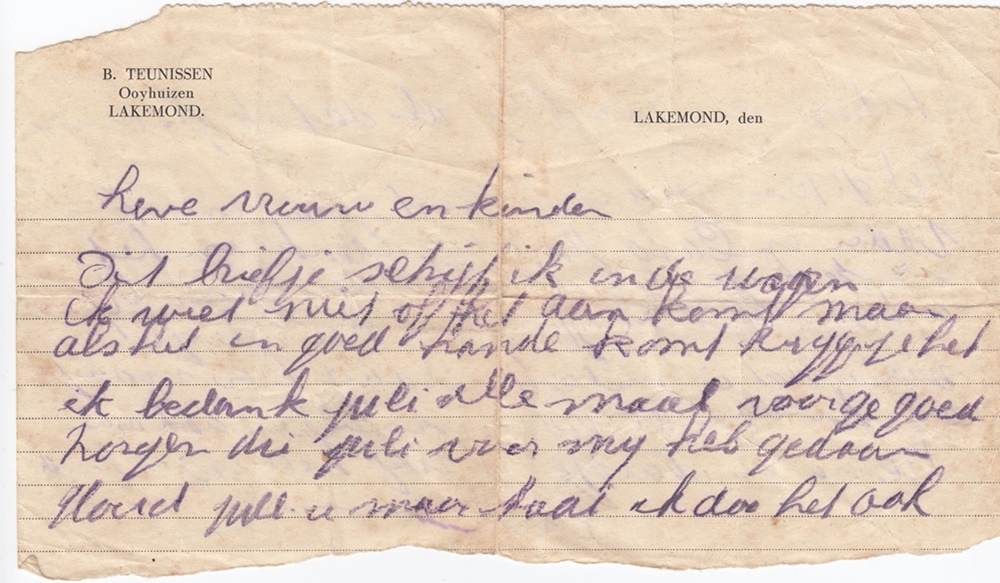 B. TEUNISSEN
Ooyhuizen
LAKEMOND.
LAKEMOND, den
Leve vrouw en kinder
Dit briefje schrijf ik in de wagen
ik weet niet of het aan komt maar
als het in goed hande komt kryg je het
ik bedank juli alle maal voor ge goed
zorgen die juli voor my heb gedaan
Houd jull u maar taai ik doe het ook